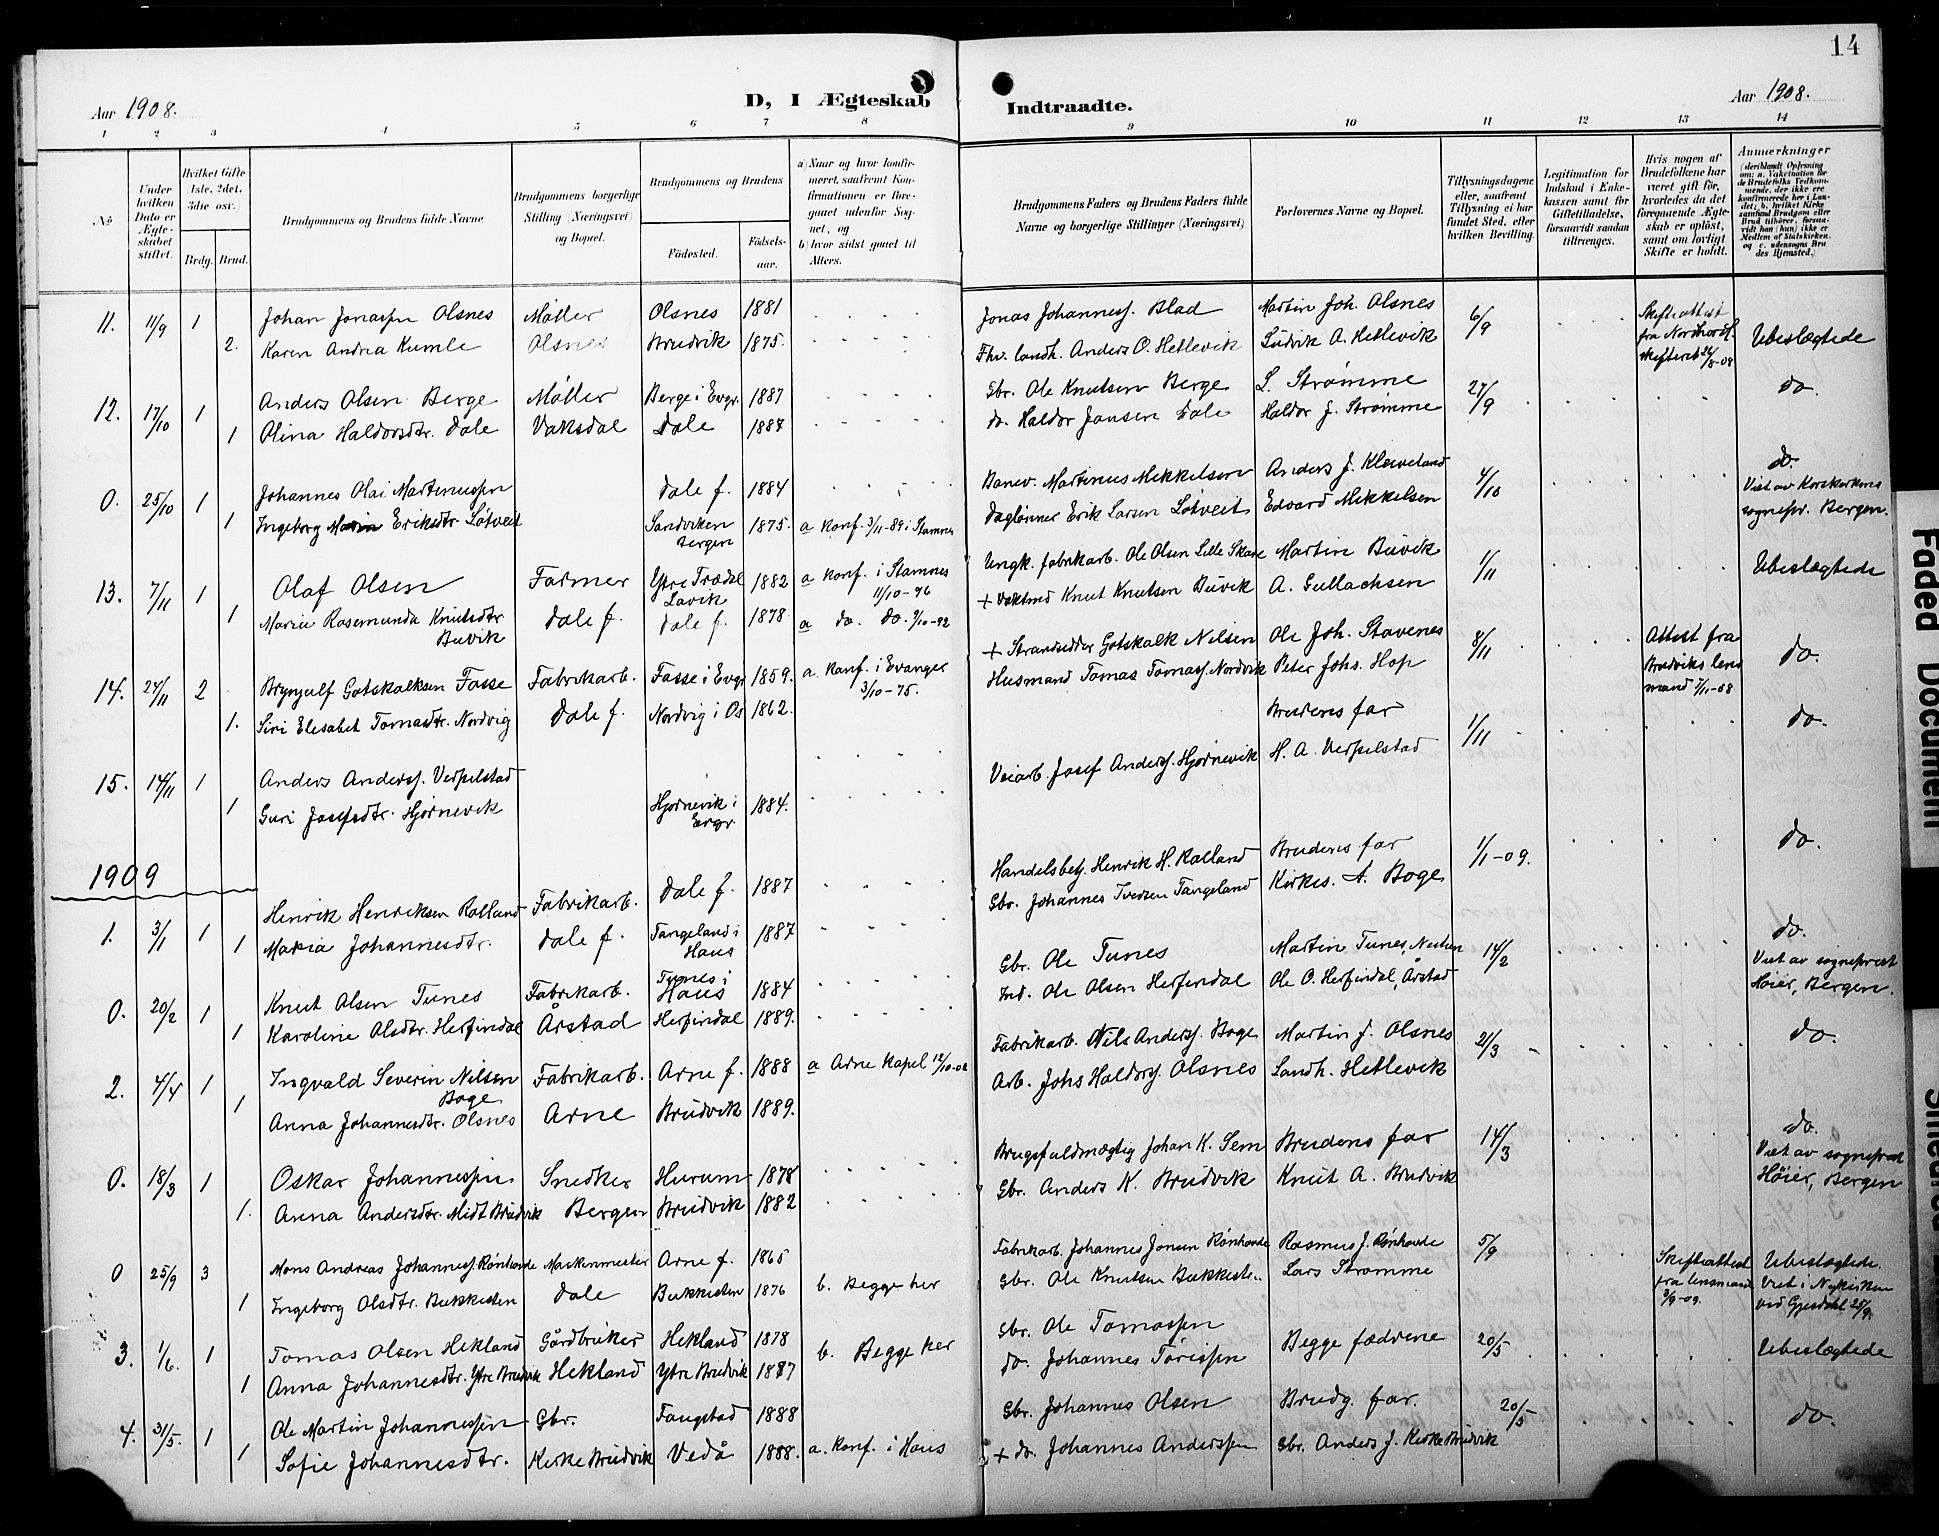 14
Aar 1908.
D, I Ægteskab
Indtraadte.
Aar 1908.
1 2 3 4 5 6 7 8
9 10 11 12 13 14
№
Under hvilken Dato er Ægteskabet stiftet.
Hvilket Gifte (1ste, 2det, 3die osv.)
Brdg. Brud.
Brudgommens og Brudens fulde Navne
Brudgommens borgerlige Stilling (Næringsvei) og Bopæl.
Brudgommens og Brudens
Födested.
Födselsaar.
a) Naar og hvor konfirmeret, saafremt Konfirmationen er foregaaet udenfor Sognet, og
b) hvor sidst gaaet til Alters.
Brudgommens Faders og Brudens Faders fulde Navne og borgerlige Stillinger (Næringsvei)
Forlovernes Navne og Bopæl.
Tillysningsdagene eller, saafremt Tillysning ei har fundet Sted, efter hvilken Bevilling.
Legitimation for Indskud i Enkekassen samt for Giftetilladelse, forsaavidt saadan tiltrænges.
Hvis nogen af Brudefolkene har været gift för, hvorledes da det foregaaende Ægteskab er oplöst, samt om lovligt Skifte er holdt.
Anmærkninger (deriblandt Oplysning om: a. Vakcination for de Brudefolks Vedkommende, der ikke ere konfirmerede her i Landet; b. hvilket Kirkesamfund Brudgom eller Brud tilhörer, forsavidt han (hun) ikke er Medlem af Statskirken, og c. udensogns Brudes Hjemsted.)
11. 11/9 1 Johan Jonassen Olsnes Møller Olsnes 1881 Jonas Johanness. Blad Martin Joh. Olsnes 6/9 Skifteattest fra Nordhordl. skifteret 26/8-08 Ubeslægtede
2. Karen Andrea Kumle Olsnes Brudvik 1875. Fhv. landh. Anders O. Hetlevik Ludvik A. Hetlevik
12. 17/10 1 Anders Olsen Berge Møller Berge i Evgr. 1887 Gbr. Ole Knutsen Berge L. Strømme 27/9 do.
1 Olina Haldorsdtr. Dale Vaksdal Dale 1887 do. Haldor Jansen Dale Haldor J. Strømme
0. 25/10 1 Johannes Olai Martinussen Dale f. 1884 Banev. Martinus Mikkelsen Anders J. Kleiveland 4/10 do. Viet av Korskirkens sognepr. Bergen.
1 Ingeborg Marin Eriksdtr. Løtveit Sandviken Bergen 1875. a konf. 3/11-89 i Stamnes Daglønner Erik Larsen Løtveit Edvard Mikkelsen
13. 7/11 1 Olaf Olsen Farmer Ytre Trædal Lavik 1882 a konf. i Stamnes 11/10-96 Ungk. fabrikarb. Ole Olsen Lille Skare Martin Buvik 1/11 Ubeslægtede
1 Maria Rosemunda Knutsdtr. Buvik Dale f. Dale f. 1878 a do. do. 9/10-92 + Vaktmd Knut Knutsen Buvik A. Gullachsen
14. 27/11 2 Brynjulf Gotskalksen Fosse Fabrikarb. Fosse i Evgr 1859. a konf. i Evanger 3/10-75. + Strandsidder Gotskalk Nilsen Ole Joh. Stavenes 8/11 Attest fra Brudviks lensmand 7/11-08 do.
1. Siri Elisabet Tomasdtr. Nordvig Dale f. Nordvig i Os 1862. Husmand Tomas Tomass. Nordvik Peter Johs. Hop
15. 14/11 1 Anders Anderss. Verpelstad Brudens far 1/11 do.
1 Guri Josefsdtr. Hjørnevik Hjørnevik i Evgr. 1884. Veiarb. Josef Anderss. Hjørnevik H. A. Verpelstad
1909
1. 3/1 1 Henrik Henriksen Rolland Fabrikarb. Dale f. 1887 Handelsbetj. Henrik H. Rolland Brudens far 1/1-09. do.
1 Maria Johannesdtr. Dale f. Tangeland i Haus 1887 Gbr. Johannes Iversen Tangeland Kirkes. A. Boge
0. 20/2 1 Knut Olsen Tunes Fabrikarb. Tunes i Haus 1884 Gbr. Ole Tunes Martin Tunes, Nesttun 14/2 do. Viet av sogneprest Høier, Bergen.
1 Karoline Olsdtr. Herfindal Årstad Herfindal 1889. Ind. Ole Olsen Herfindal Ole O. Herfindal, Årstad
2. 4/4 1 Ingvald Severin Nilsen Boge Fabrikarb. Arne f. 1888 a Arne kapel 12/10-02 Fabrikarb. Nils Anderss. Boge Martin J. Olsnes 21/3 do.
1 Anna Johannesdtr. Olsnes Arne Brudvik 1889. Arb. Johs Haldorss. Olsnes Landh. Hetlevik
0. 18/3 1 Oskar Johannessen Snedker Hurum 1878 Brugsfuldmægtig Johan K. Sem Brudens far 14/3 do. Viet av sogneprest Høier, Bergen
1. Anna Andersdtr. Midt Brudvik Bergen Brudvik 1882 Gbr. Anders K. Brudvik Knut A. Brudvik
0 25/9 3 Mons Andreas Johanness. Rønhovde Maskinmester Arne f. 1865 Fabrikarb. Johannes Jonsen Rønhovde Rasmus J. Rønhovde 5/9 Skifteattest fra lensmand 3/9-09. Ubeslægtede. Viet i Nykirken ved Gjesdahl 25/9.
1 Ingeborg Olsdtr. Bukkesten Dale Bukkesten 1876 b. Begge her Gbr. Ole Knutsen Bukkesten Lars Strømme
3. 1/6. 1 Tomas Olsen Hekland Gårdbruker Hekland 1878 b. Begge her Gbr. Ole Tomassen Begge fædrene 20/5 Ubeslægtede
1 Anna Johannesdtr. Ytre Brudvik Hekland Ytre Brudvik 1887 do. Johannes Torissen
4. 31/5. 1 Ole Martin Johannessen Gbr. Fangstad 1888 Gbr. Johannes Olsen Brudg. far. 20/5 do.
1 Sofie Johannesdtr. Kirke Brudvik Vedå 1888. a. konf. i Haus + do. Johannes Anderssen Gbr. Anders J. Kirke Brudvik
Faded Document